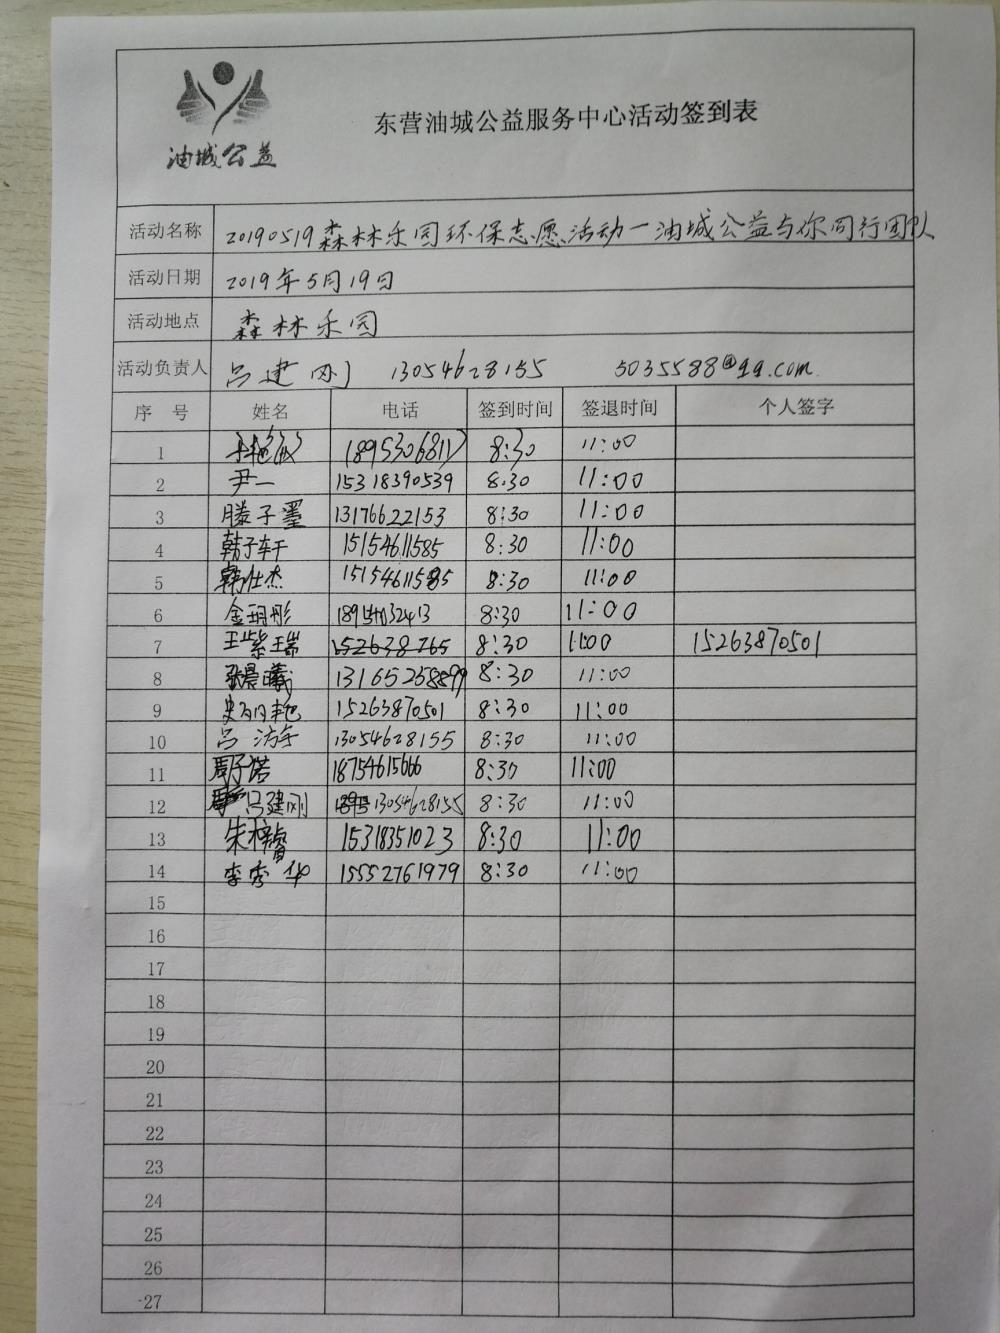 油城公益
东营油城公益服务中心活动签到表
活动名称 20190519森林乐园环保志愿活动一油城公益与你同行团队
活动日期 2019年5月19日
活动地点 森林乐园
活动负责人 吕建刚 13054628155 5035588@qq.com
序号 姓名 电话 签到时间 签退时间 个人签字
1 18953068117 8:30 11:00
2 尹一 15318390539 8:30 11:00
3 滕子墨 13176622153 8:30 11:00
4 韩子轩 15154611585 8:30 11:00
5 韩仕杰 15154611585 8:30 11:00
6 金玥彤 8:30 11:00
7 王紫瑞 8:30 11:00 15263870501
8 张晨曦 8:30 11:00
9 15263870501 8:30 11:00
10 吕 13054628155 8:30 11:00
11 周子诺 18754615666 8:30 11:00
12 吕建刚 13054628155 8:30 11:00
13 朱梓睿 15318351023 8:30 11:00
14 李秀华 15552761979 8:30 11:00
15
16
17
18
19
20
21
22
23
24
25
26
27